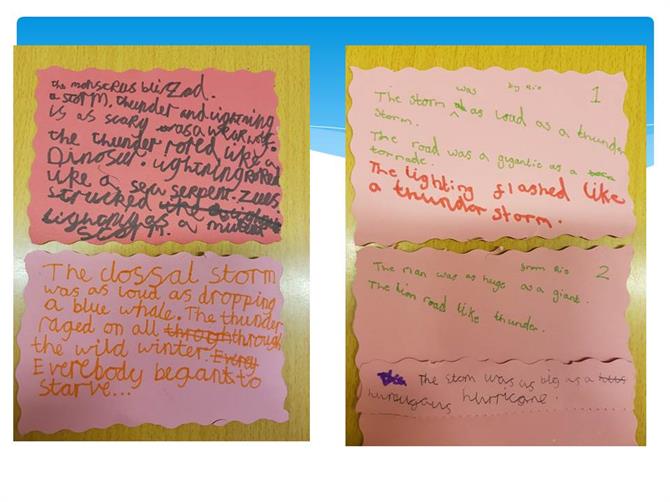 a storm, thunder and lightning
is as scary as a
the thunder rored like a
Dinosor. lightning
like a sea serpent. Zues
strucked
lightning as a
storm.
The clossal storm
was as loud as dropping
a blue whale. The thunder
raged on all throogh through
the wild winter. Every
Everybody began to
starve...
was by Rio 1
The storm as loud as a thunder
storm.
The road was a gigantic as a
tornade.
The lighting flashed like
a thunder storm.
from Rio 2
The man was as huge as a giant.
The lion road like thunder.
The storm was as big as a
hurricane.